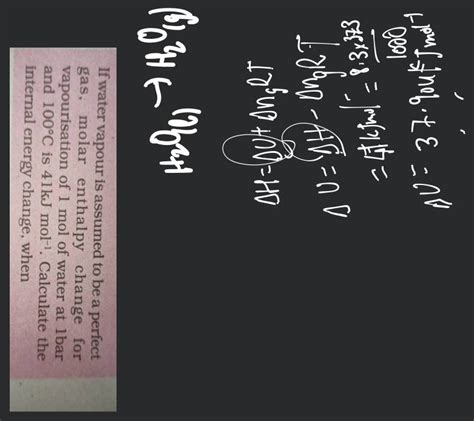 If water vapour is assumed to be a perfect
gas, molar enthalpy change for
vapourisation of 1 mol of water at 1bar
and 100°C is 41kJ mol⁻¹. Calculate the
internal energy change, when
H₂O(l) → H₂O(g)
ΔH = ΔU + ΔngRT
ΔU = ΔH - ΔngRT
= 41 kJ mol⁻¹ - 8.3×373
1000
ΔU = 37.904 kJ mol⁻¹